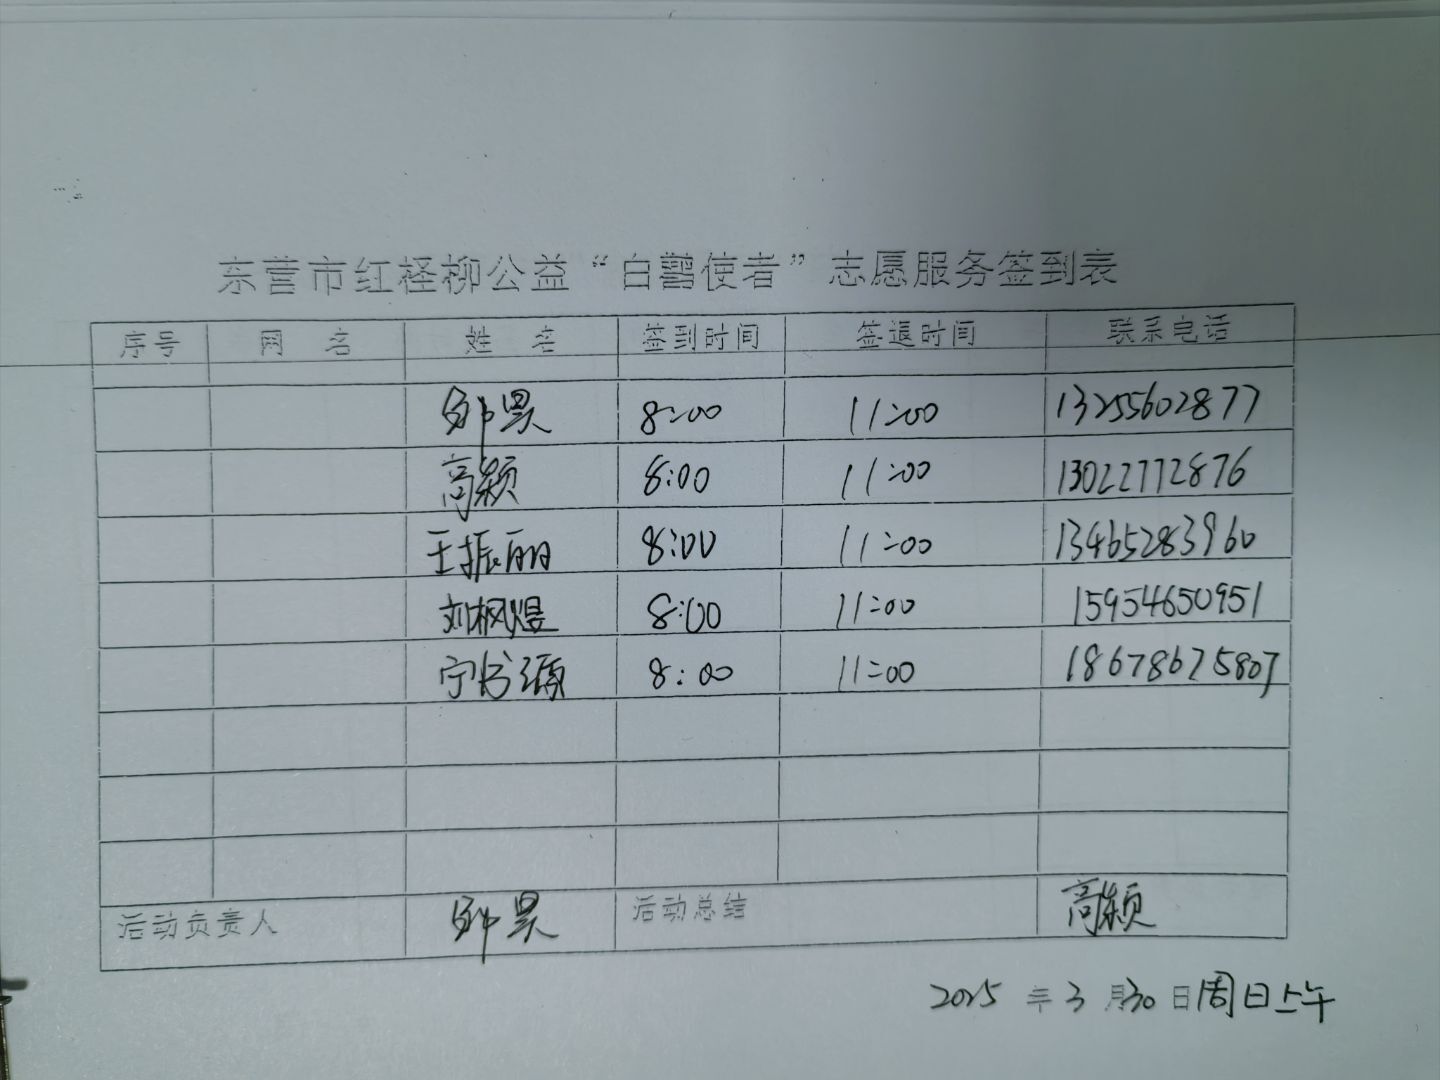 东营市红柽柳公益“白鹳使者”志愿服务签到表
序号 网 名 姓 名 签到时间 签退时间 联系电话
邹昊 8:00 11:00 13255602877
高颖 8:00 11:00 13022772876
王振丽 8:00 11:00 13465283960
刘枫煜 8:00 11:00 15954650951
宁书源 8:00 11:00 18678675807
活动负责人 邹昊 活动总结 高颖
2025 年 3 月 30 日 周日上午